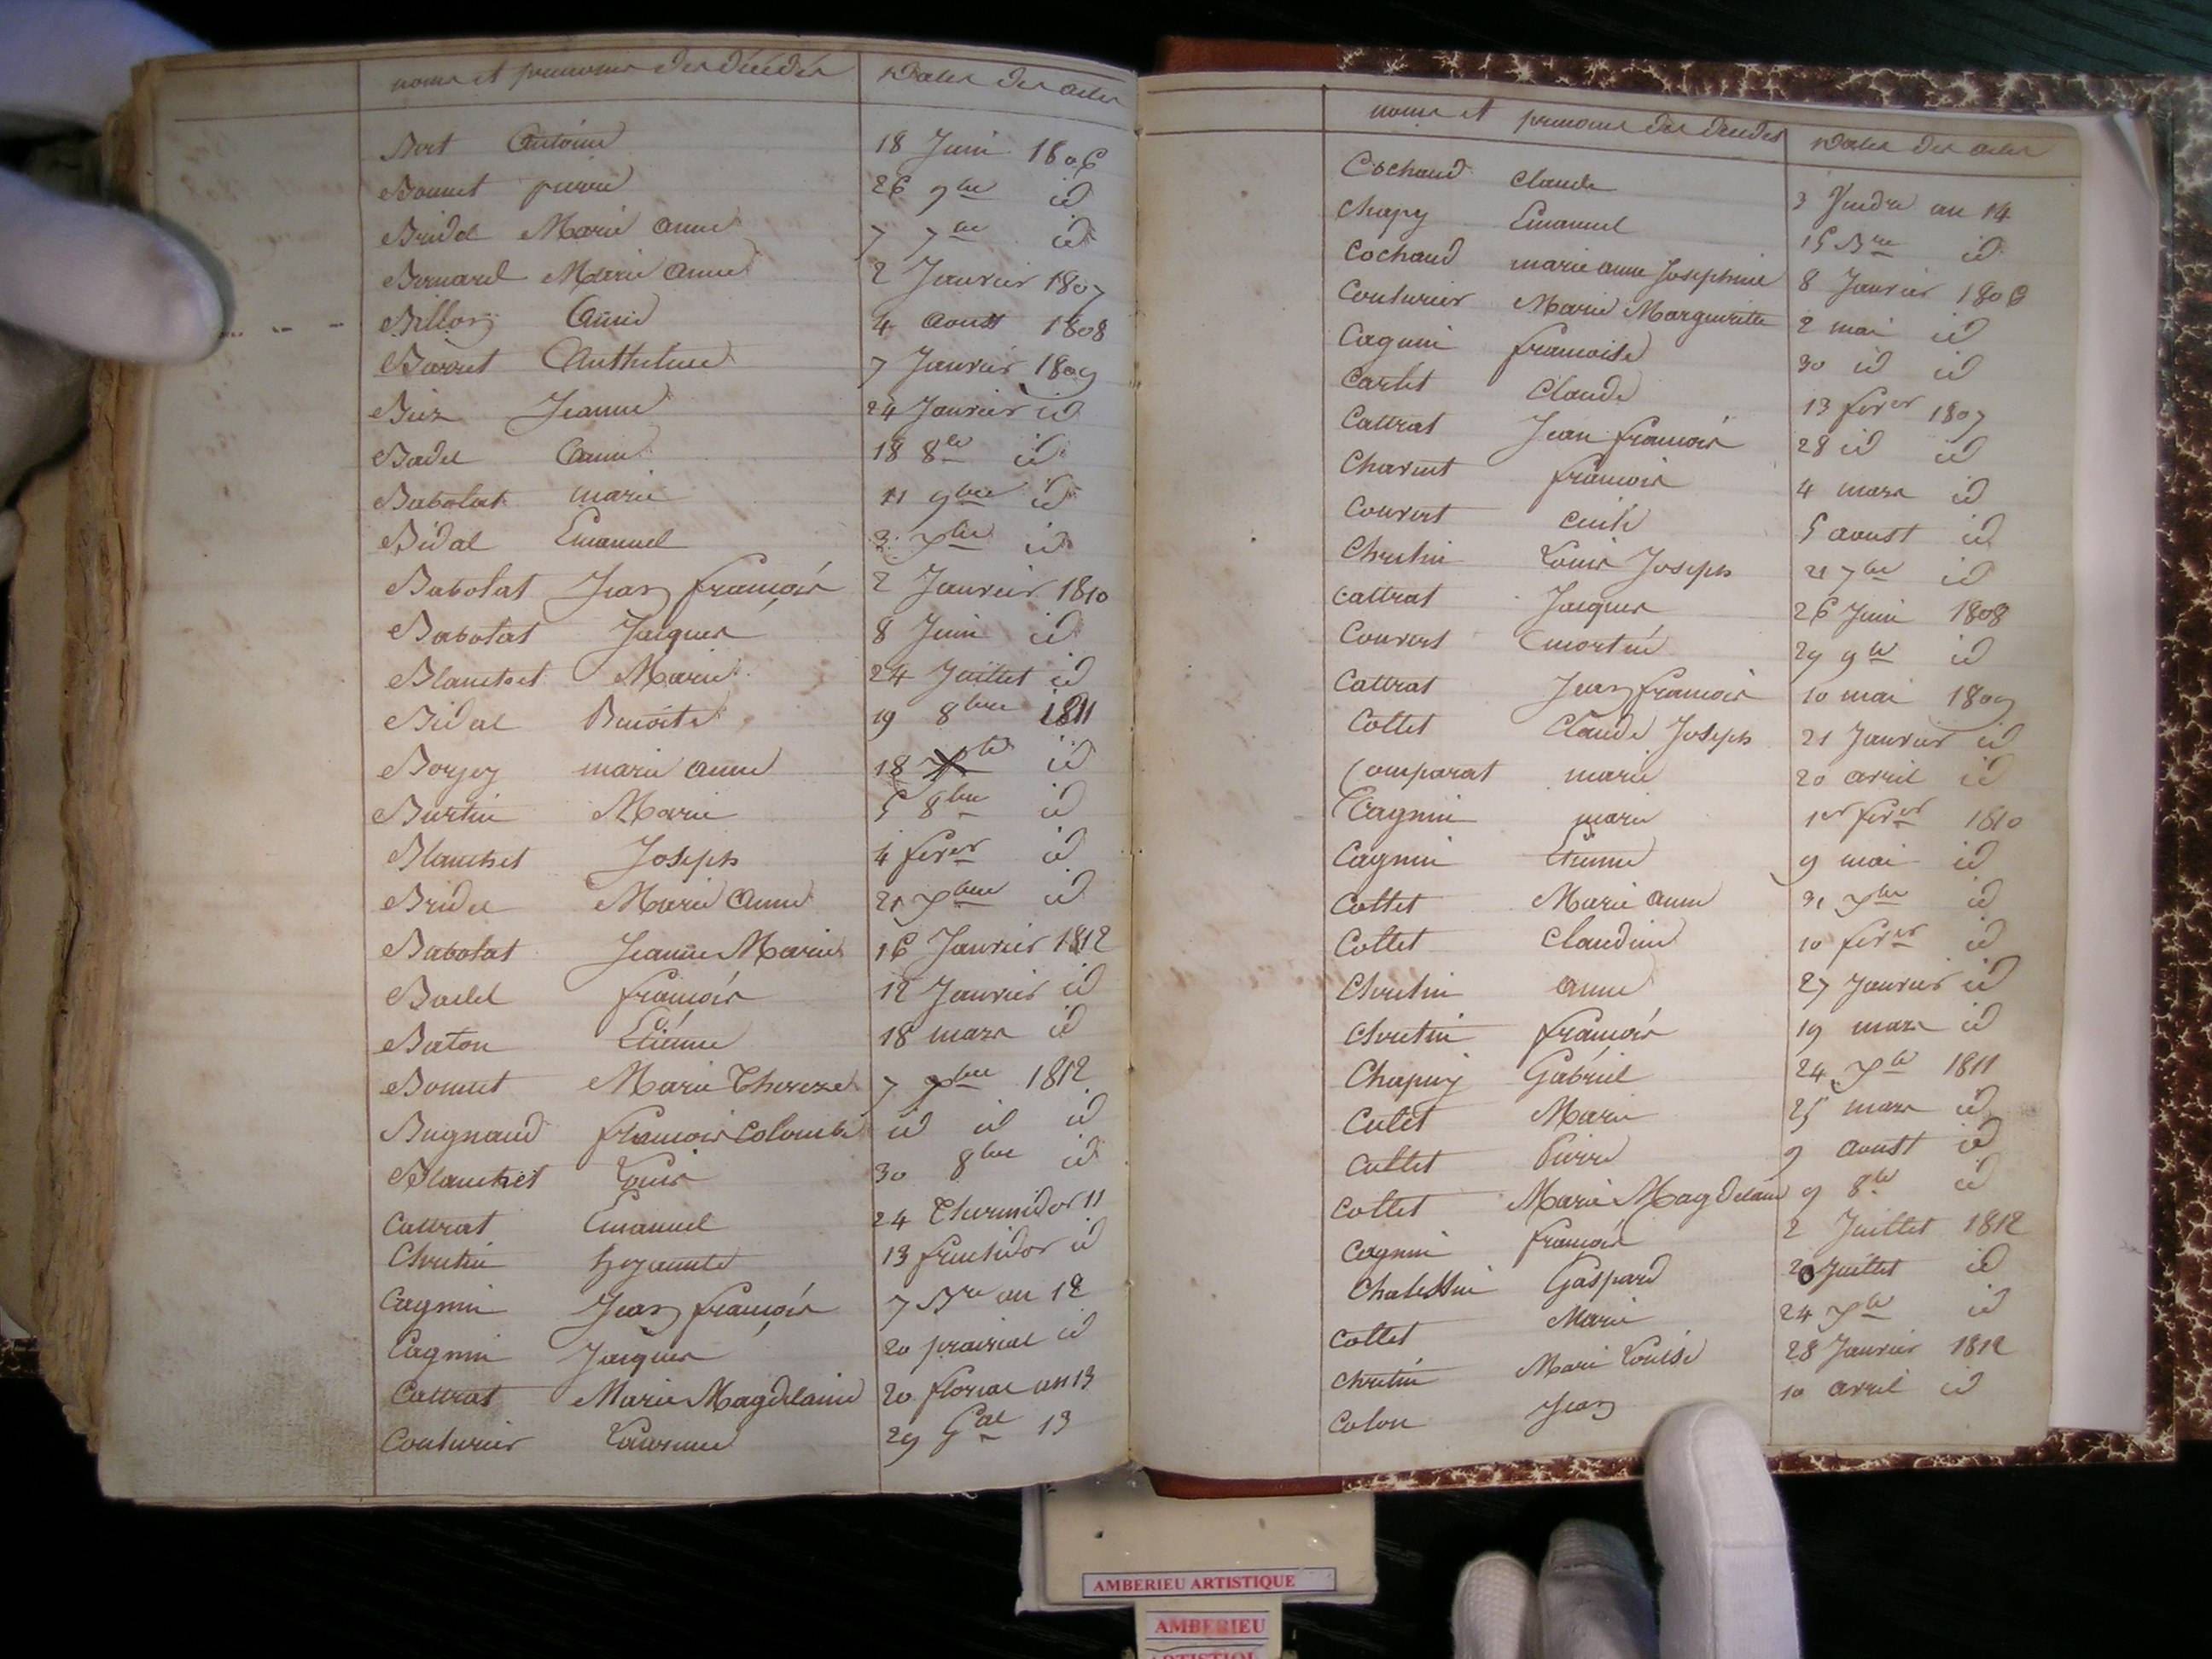 noms et prenoms des décédés Dates des actes
Bert Antoine 18 Juin 1806
Bonnet pierre 26 9bre id
Bridel Marie Anne 7 7bre id
Bernard Marie Anne 2 Janvier 1807
Billon Anne 4 Aoust 1808
Barret Anthelme 7 Janvier 1809
Biez Jeanne 24 Janvier id
Badel Anne 18 8bre id
Babolat marie 11 9bre id
Bidal Emanuel 3 Xbre id
Babolat Jean françois 2 Janvier 1810
Babolat Jacques 8 Juin id
Blanchet Marie 24 Juillet id
Bidal Benoite 19 8bre 1811
Borjey marie anne 18 id
Burtin Marie 5 8bre id
Blanchet Joseph 4 fever id
Bridel Marie Anne 21 Xbre id
Babolat Jeanne Marie 16 Janvier 1812
Badel françois 12 Janvier id
Baton Etienne 18 mars id
Bonnet Marie Thereze 7 Xbre 1812
Bugnaud francois Colombe id id id
Blanchet Louis 30 8bre id
Cattrat Emanuel 24 Thermidor 11
Chretin hyacinte 13 fructidor id
Cagnin Jean françois 7 Bre an 12
Cagnin Jacques 20 prairial id
Cattrat Marie Magdelaine 20 floreal an 13
Couturier Laurence 29 Gal 13
noms et prenoms des décédés Dates des actes
Cochaud Claude 3 Vendre an 14
Chapy Emanuel 15 Bre id
Cochaud marie anne Josephine 8 Janvier 1806
Couturier Marie Marguerite 2 mai id
Cagnin francoise 30 id id
Carlet Claude 13 fever 1807
Cattrat Jean francois 28 id id
Charvet francois 4 mars id
Couvert 5 aoust id
Chretin Louis Joseph 21 7bre id
Cattrat Jacques 26 Juin 1808
Couvert mort né 29 9bre id
Cattrat Jean francois 10 mai 1809
Collet Claude Joseph 21 Janvier id
Comparat marie 20 avril id
Cagnin marie 1er fever 1810
Cagnin Etienne 9 mai id
Collet Marie Anne 31 Xbre id
Collet Claudine 10 fever id
Chretin anne 27 Janvier id
Chretin françois 19 mars id
Chapuy Gabriel 24 Xbre 1811
Culet Marie 25 mars id
Cullet Pierre 9 aoust id
Collet Marie Magdelaine 9 8bre id
Cagnin françois 2 Juillet 1812
Gaspard 20 Juillet id
Collet Marie 24 Xbre id
Chretin Marie Louise 28 Janvier 1812
Colon Jean 10 avril id
AMBERIEU ARTISTIQUE
AMBERIEU
ARTISTIQUE